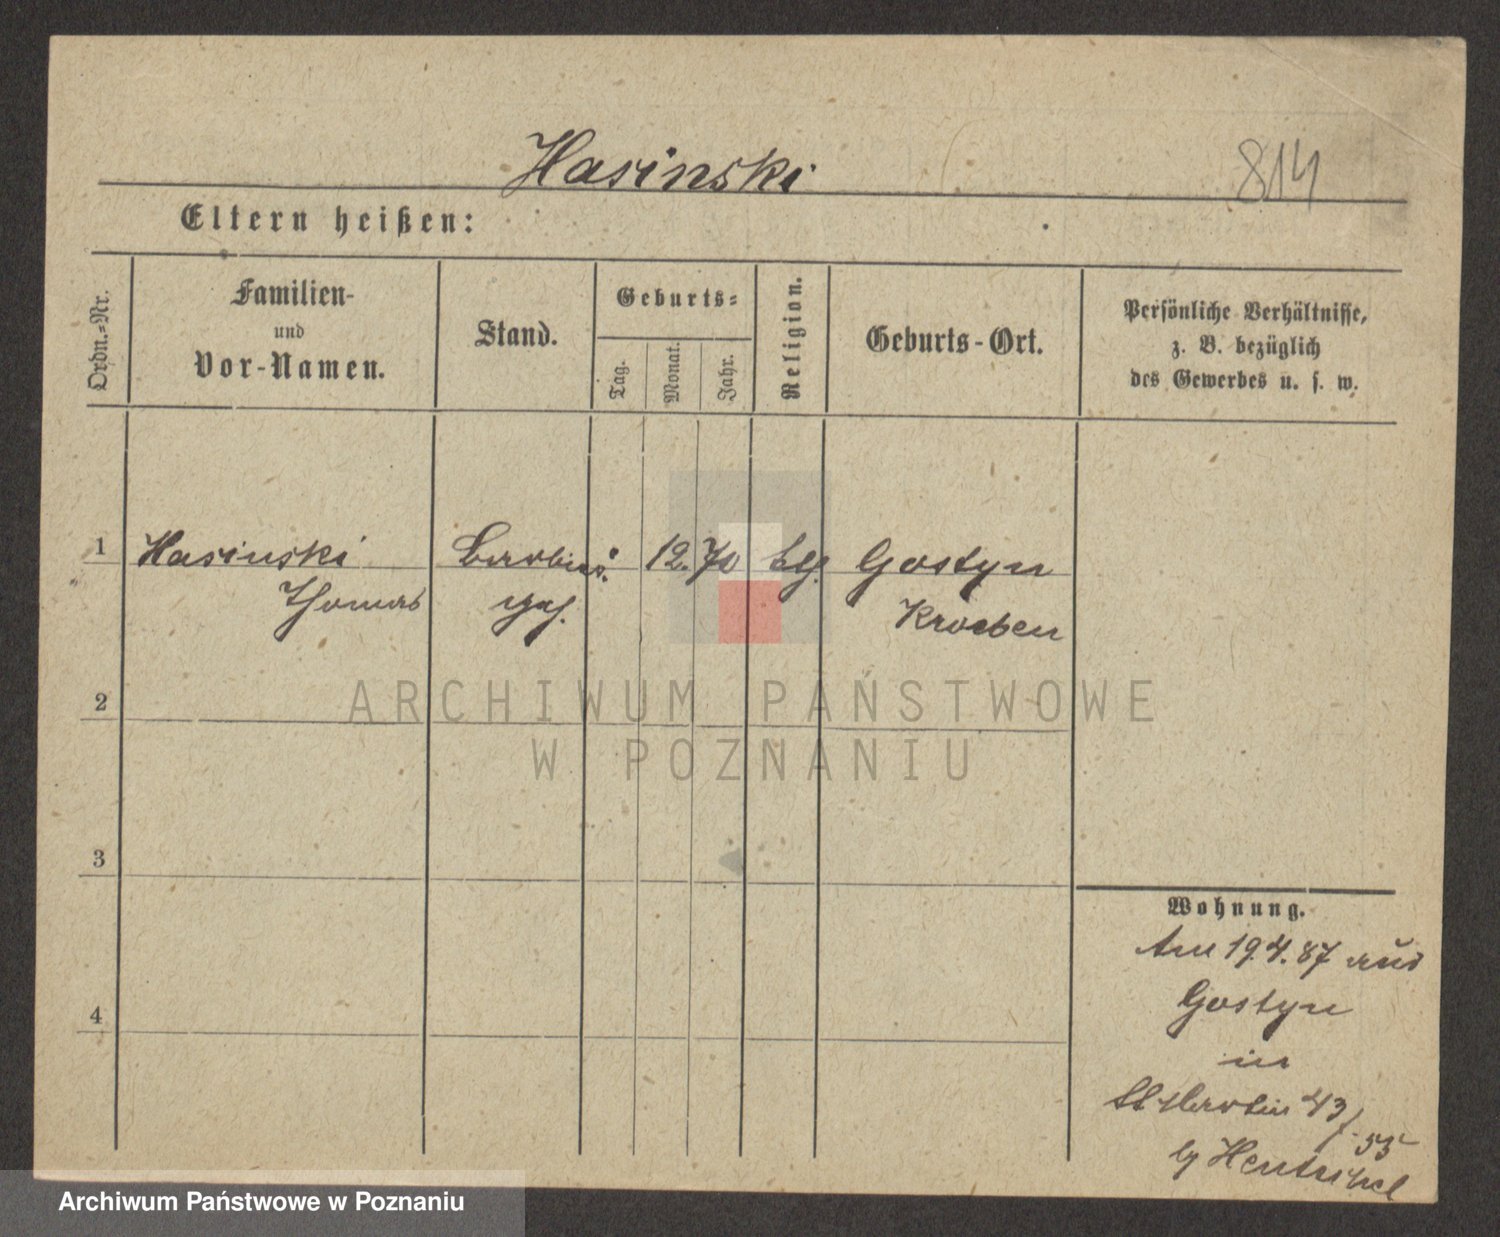 Hasinski
814
Eltern heißen:
Ordn.-Nr.
Familien-
und
Vor-Namen.
Stand.
Geburts-
Tag.
Monat.
Jahr.
Religion.
Geburts-Ort.
Persönliche Verhältnisse,
z. B. bezüglich
des Gewerbes u. s. w.
1 Hasinski 12. 70 Gostyn
Thomas Kroeben
2
ARCHIWUM PAŃSTWOWE
W POZNANIU
3
Wohnung.
Am 19.4.87 aus
Gostyn
4
in
St Martin 43/
55
Archiwum Państwowe w Poznaniu